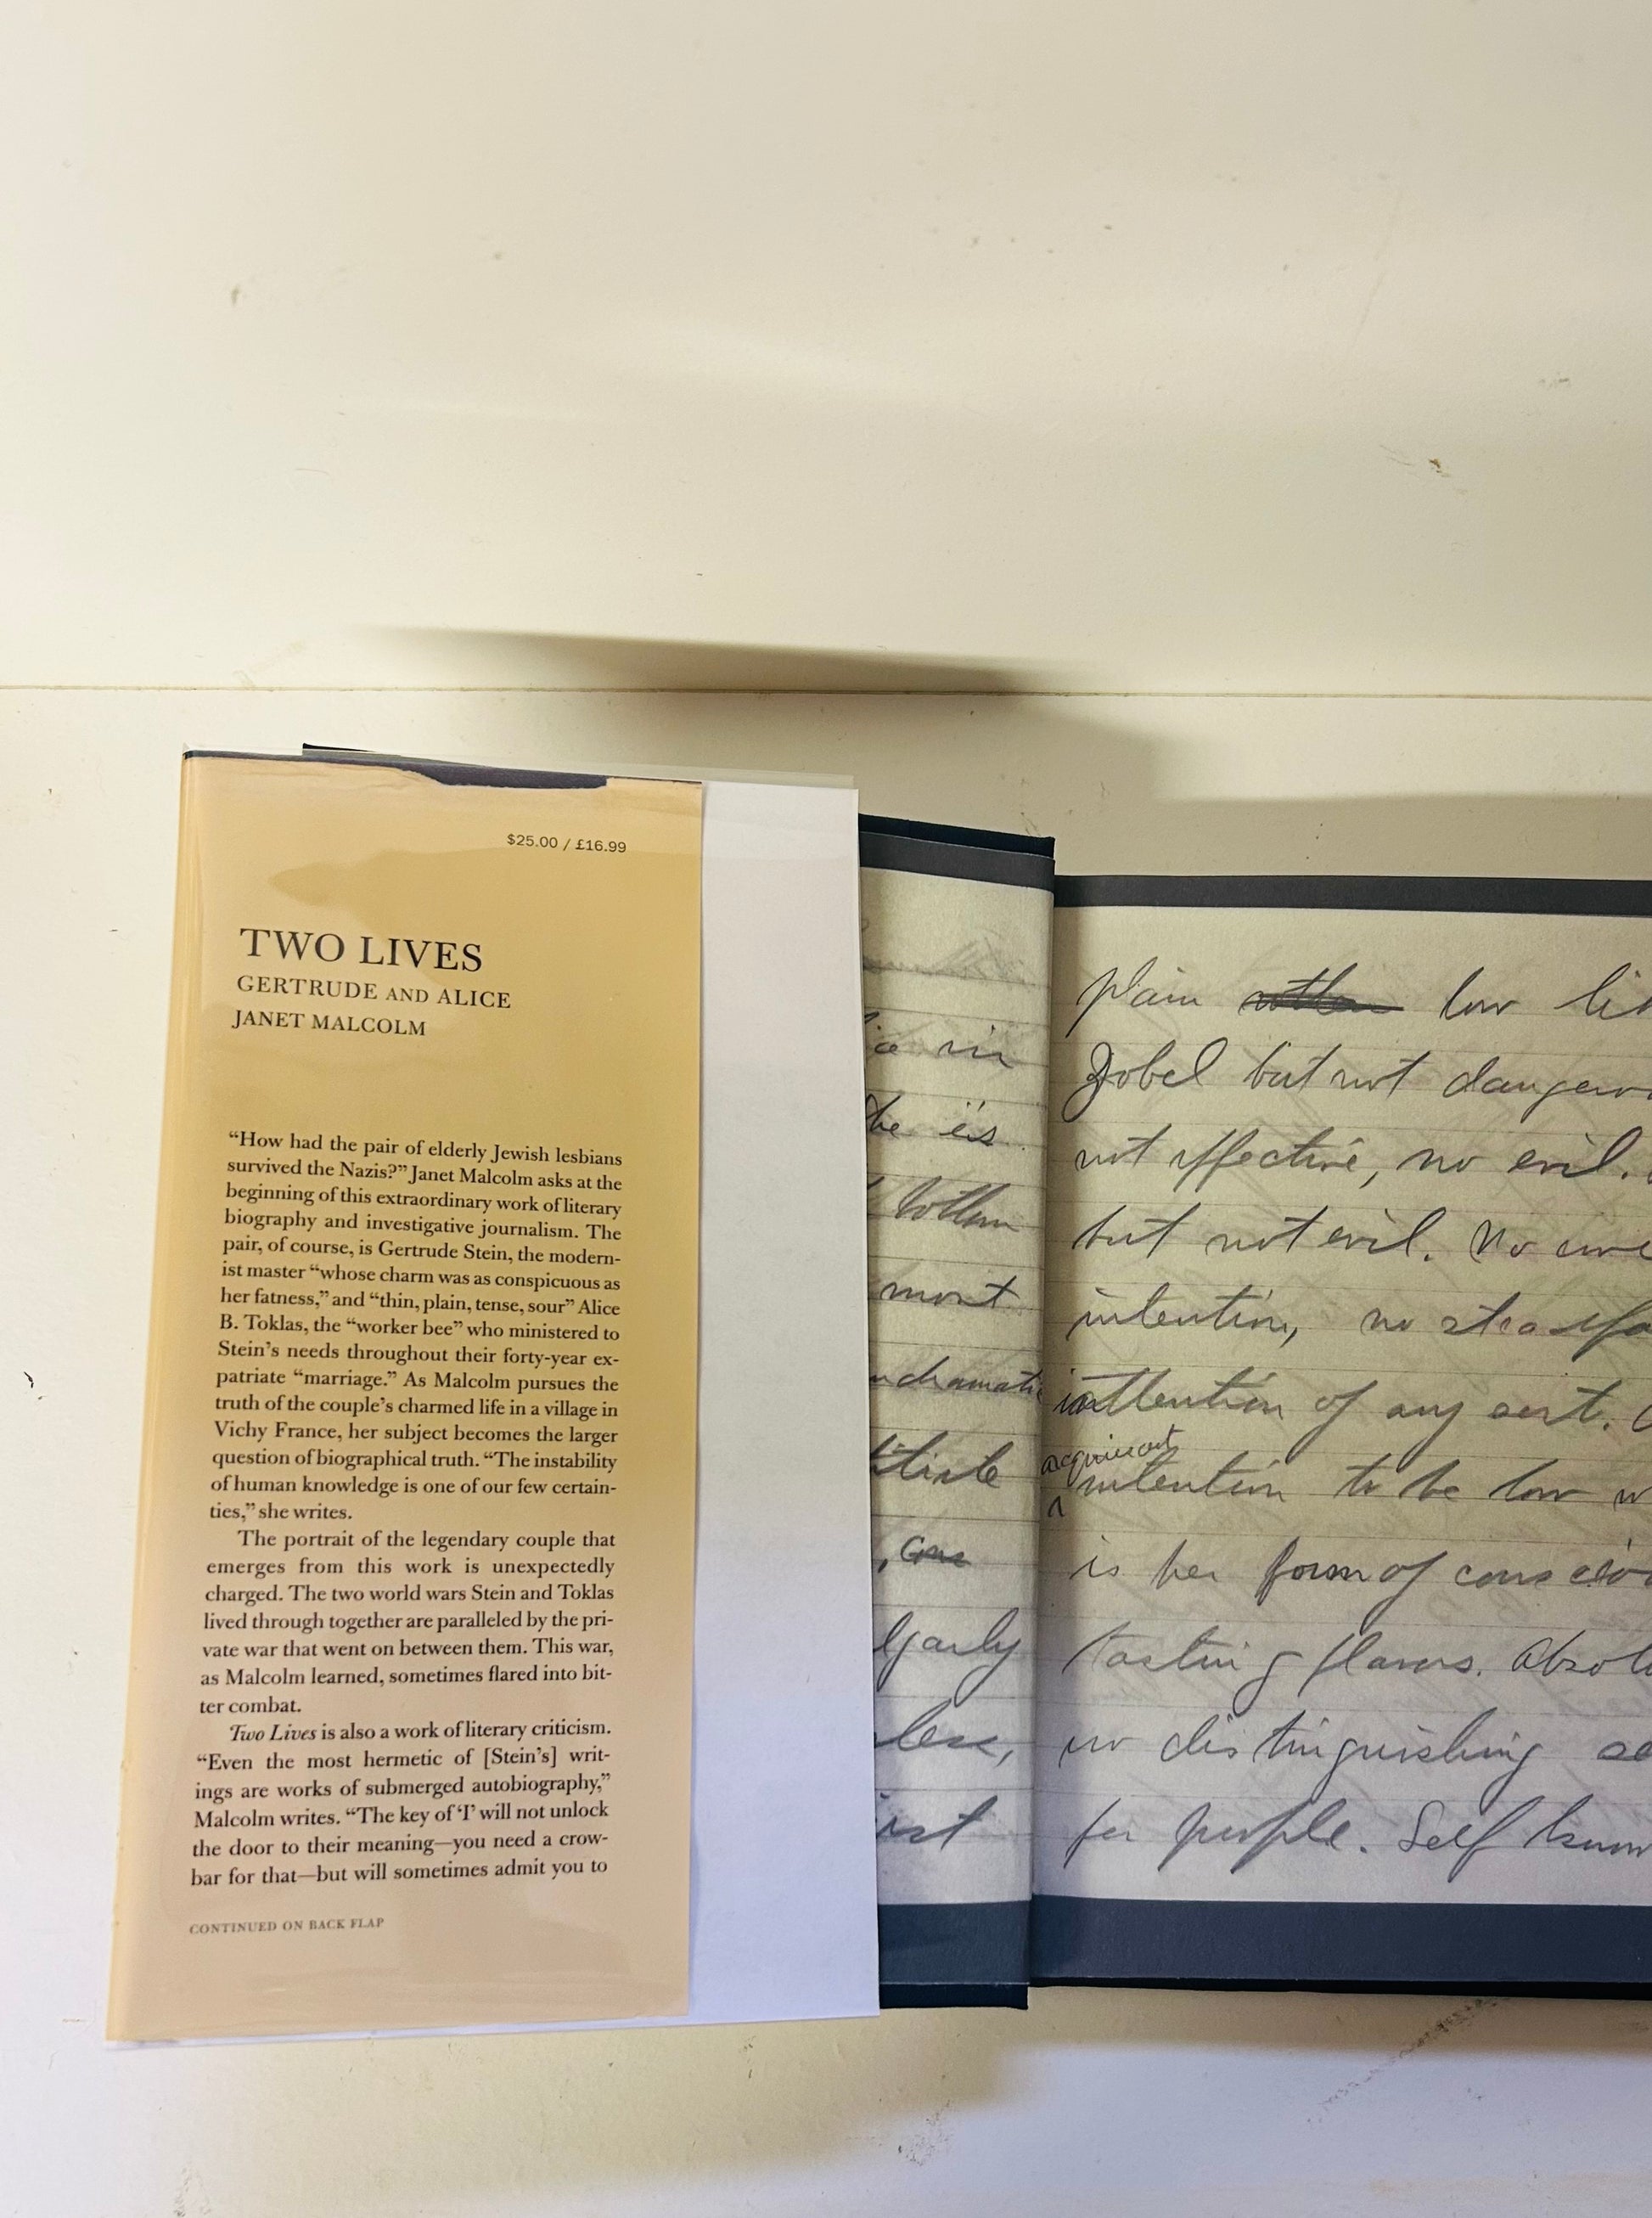 $25.00 / £16.99
TWO LIVES
GERTRUDE AND ALICE
JANET MALCOLM
“How had the pair of elderly Jewish lesbians
survived the Nazis?” Janet Malcolm asks at the
beginning of this extraordinary work of literary
biography and investigative journalism. The
pair, of course, is Gertrude Stein, the modern-
ist master “whose charm was as conspicuous as
her fatness,” and “thin, plain, tense, sour” Alice
B. Toklas, the “worker bee” who ministered to
Stein’s needs throughout their forty-year ex-
patriate “marriage.” As Malcolm pursues the
truth of the couple’s charmed life in a village in
Vichy France, her subject becomes the larger
question of biographical truth. “The instability
of human knowledge is one of our few certain-
ties,” she writes.
The portrait of the legendary couple that
emerges from this work is unexpectedly
charged. The two world wars Stein and Toklas
lived through together are paralleled by the pri-
vate war that went on between them. This war,
as Malcolm learned, sometimes flared into bit-
ter combat.
Two Lives is also a work of literary criticism.
“Even the most hermetic of [Stein’s] writ-
ings are works of submerged autobiography,”
Malcolm writes. “The key of ‘I’ will not unlock
the door to their meaning—you need a crow-
bar for that—but will sometimes admit you to
CONTINUED ON BACK FLAP
in
is
bottom
most
plain low
Zobel but not
not effective, no evil.
but not evil. No
intention, no
attention of any sort.
intention to be low
is her form of
tasting flavors.
no distinguishing
for people. Self